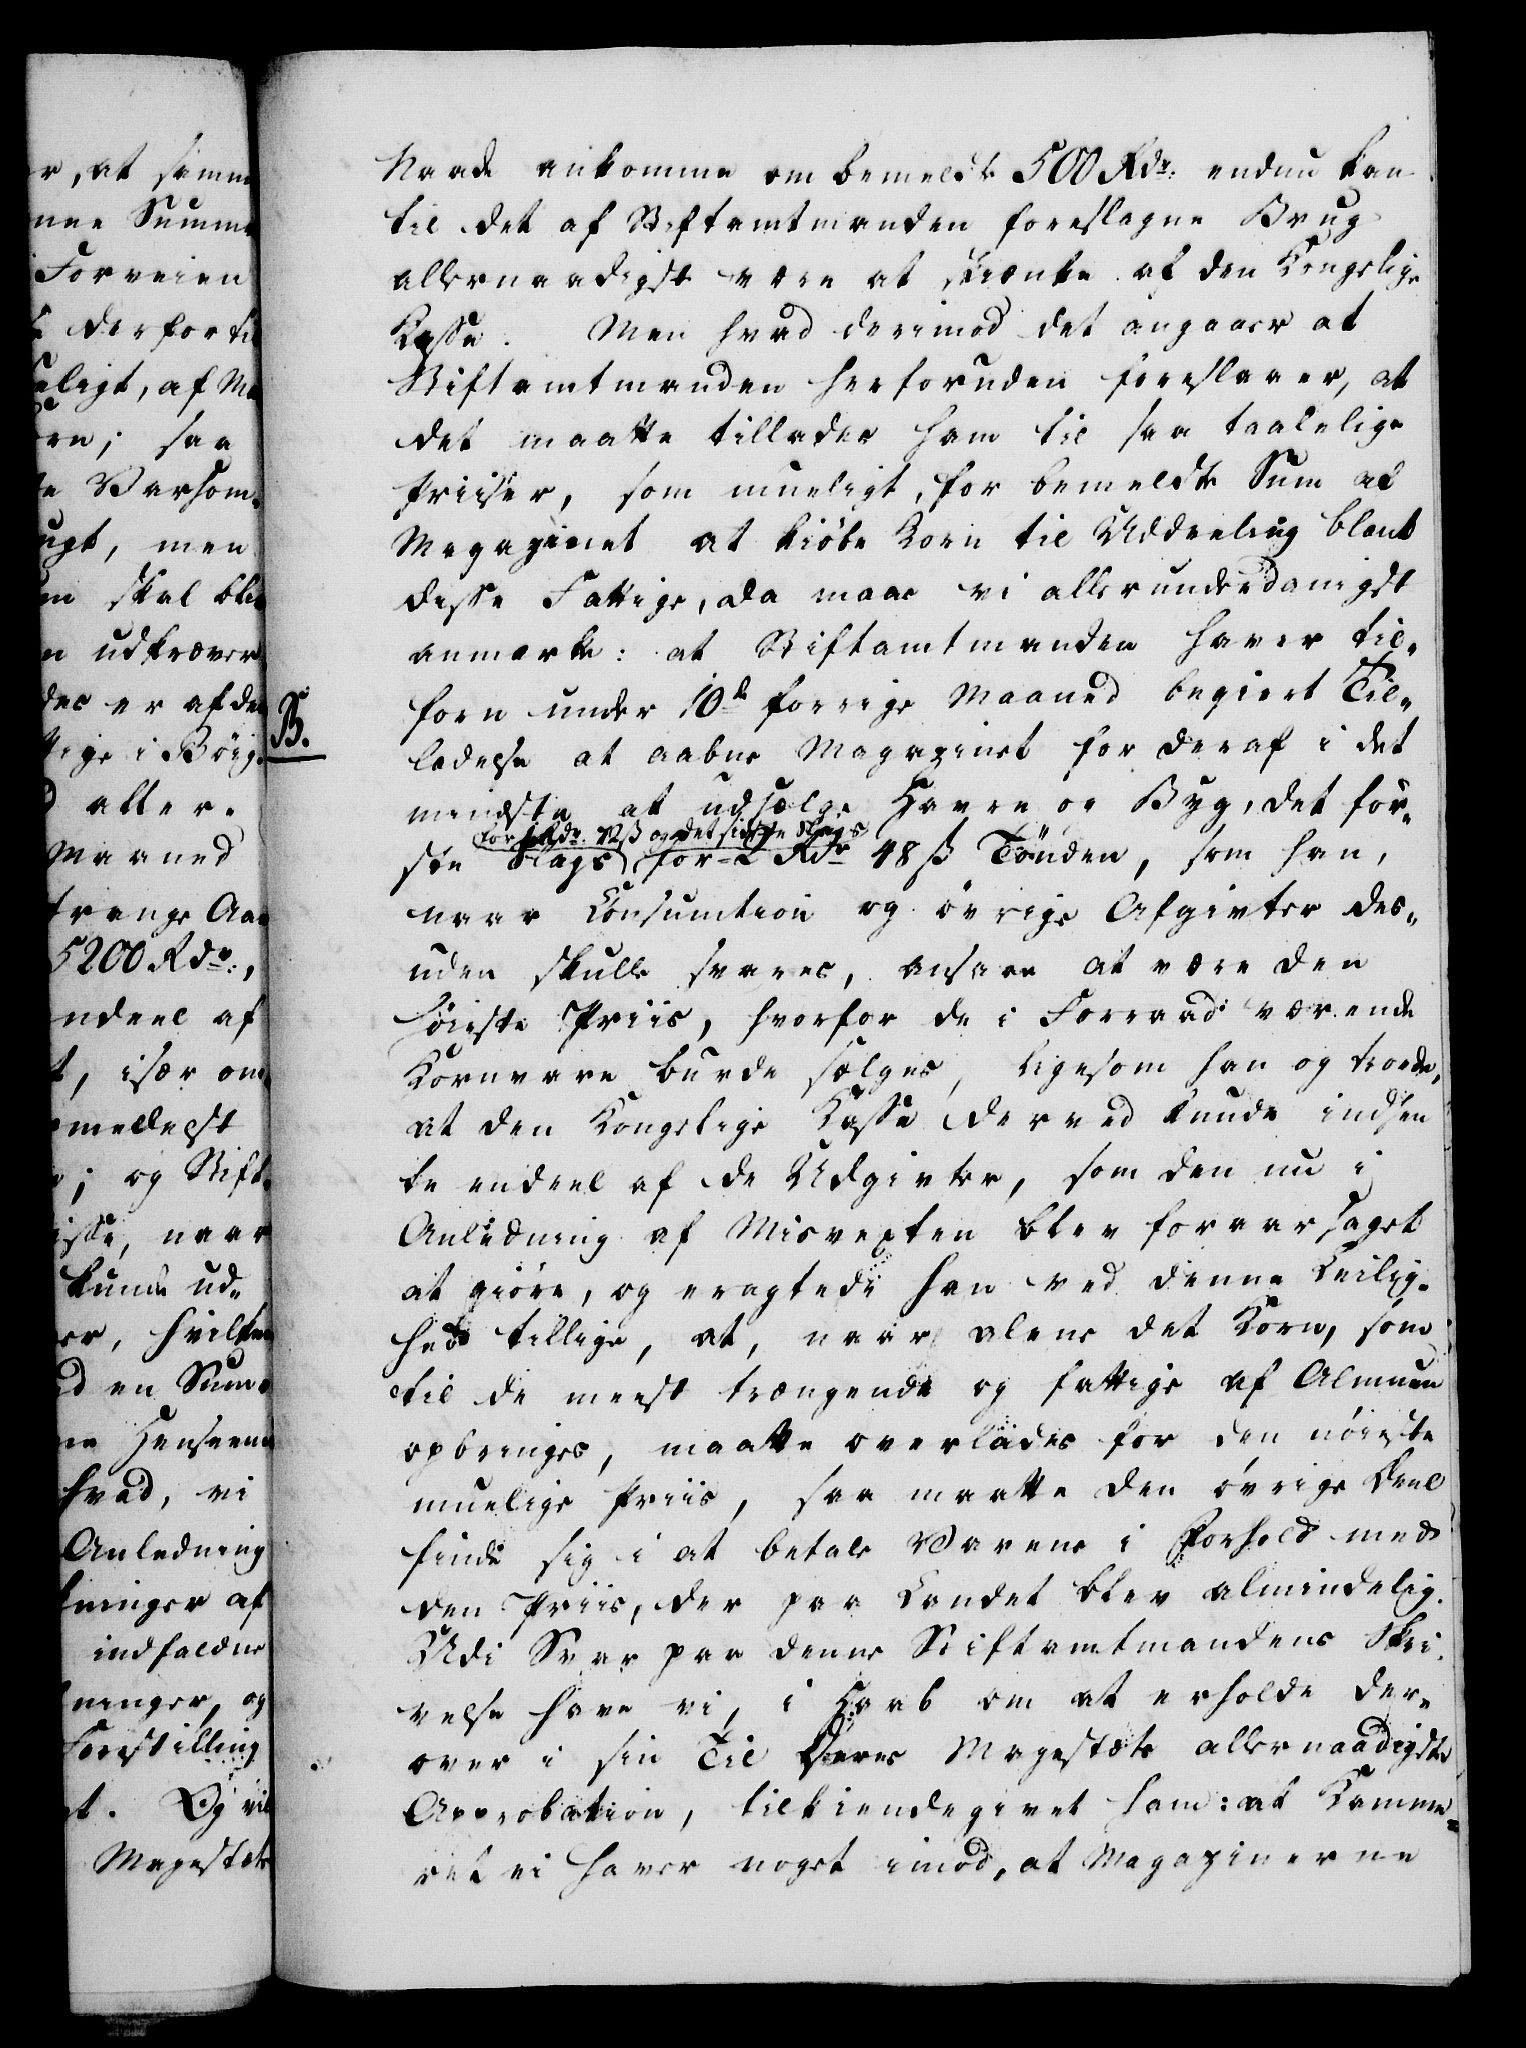 r, at samme
nee Summe
Forveien
t derfor til
ueligt, af Ma
orn; saa
te Varsom-
ugt, men
en skal blev
n udkræver
des er af det
ttige i Böig-
d aller-
Maaned
trange Aar
5200 Rdr.,
ndeel af
t, især om
emeldelse
e; og Stift-
isse, naar
kunde ud-
er, hvilken
ed en Sum
ne Henseende
hvad, vi
Anledning
kninger af
indfaldne
ninger, og
Forestilling
t. Og vil
Majestæts
Naade ankomme om bemeldte 500 Rdr: endnu kan
til det af Stiftamtmanden foreslagne Brug
allernaadigst være at skiænke af den Kongelige
Kasse. Men hvad derimod det angaaer at
Stiftamtmanden herforuden foreslaaer, at
det maatte tillades ham til saa taalelige
Priiser, som mueligt, for bemeldte Sum af
Magazinet at kiöbe Korn til Uddeeling blant
disse Fattige, da maae vi allerunderdanigst
anmærke: at Stiftamtmanden haver til-
B.
forn under 10de forrige Maaned begiert Til-
ladelse at aabne Magazinet for deraf i det
mindste at udsælge Havre og Byg, det för-
for 1 Rdr. 72 ß og det sidste Slags
ste Slags for 2 Rdr 48 ß Tönden, som han,
naar Consumtion og övrige Afgivter des-
uden skulle svares, ansaae at være den
höieste Priis, hvorfor de i Forraad værende
Kornvare burde sælges, ligesom han og troede,
at den Kongelige Kasse derved kunde indsen
te endeel af de Udgivter, som den nu i
Anledning af Misvexten blev foraarsaget
at giöre, og eragtede han ved denne Leilig-
hed tillige, at, naar alene det Korn, som
til de meest trængende og fattige af Almuen
opbringes, maatte overlades for den nöieste
muelige Priis, saa maatte den övrige Deel
finde sig i at betale Varene i Forhold med
den Priis, der paa Landet blev almindelig.
Udi Svar paa denne Stiftamtmandens Skri-
velse have vi, i Haab om at erholde der-
over i sin Tid Deres Majestæts allernaadigste
Approbation, tilkiendegivet ham: at Kamme-
ret ei haver noget imod, at Magazinerne